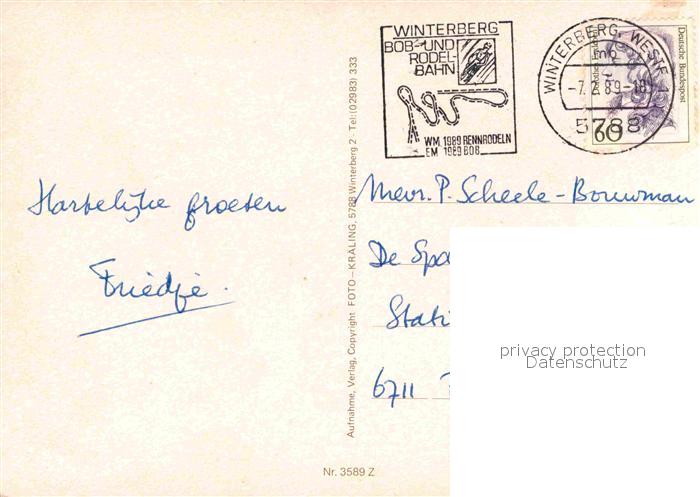 WINTERBERG
BOB- UND
RODEL-
BAHN
WM. 1989 RENNRODELN
EM 1989 BOB
WINTERBERG, WESTF 1
mb
-7.
89-18
5788
Deutsche Bundespost
60
Hartelijke groeten
Friedje.
Mevr. P. Scheele-Bouwman
De
Stati
6711
privacy protection
Datenschutz
Aufnahme, Verlag, Copyright FOTO-KRALING, 5788 Winterberg 2 · Tel: (02983) 333
Nr. 3589 Z